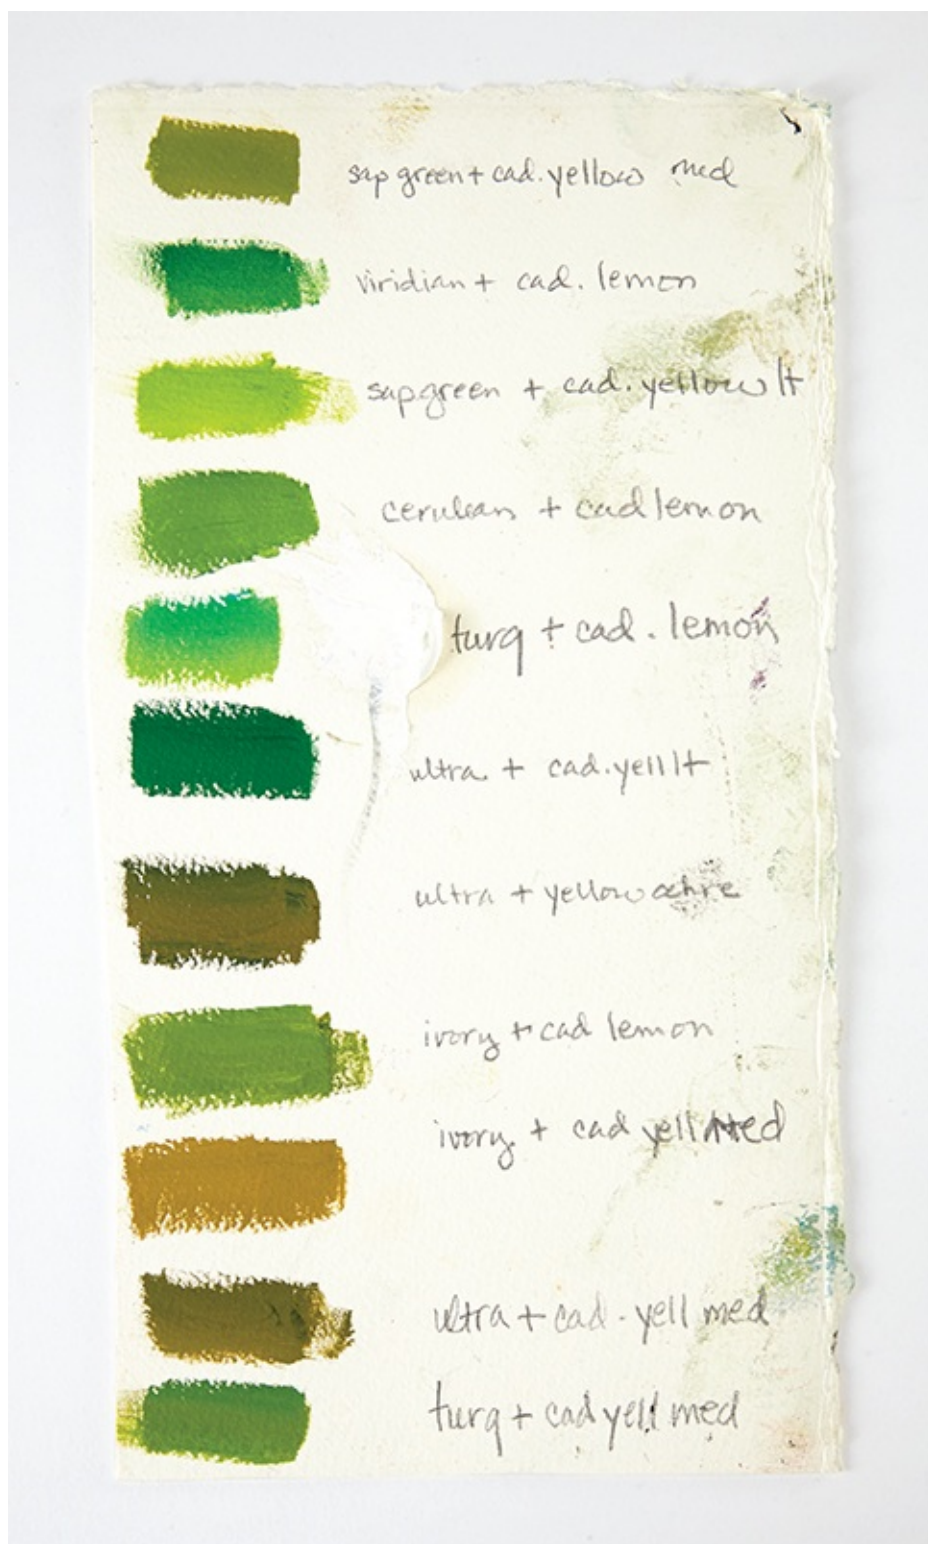 sap green + cad. yellow med
viridian + cad. lemon
sap green + cad. yellow lt
cerulean + cad lemon
turq + cad. lemon
ultra + cad. yell lt
ultra + yellow ochre
ivory + cad lemon
ivory + cad yell Med
ultra + cad. yell med
turq + cad yell med